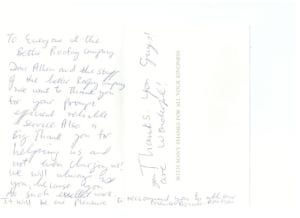 To Everyone at the
Better Roofing Company
Dear Allan and the staff
of the better Roofing Company
we want to thank you
for your prompt
efficient reliable
service. Also a
Big Thank you for
helping us and
not even charging us!
we will always
you, because you
do such work.
It will be our pleasure to recommend you to all our
Thanks you Guys!
you are wonderful!
WITH MANY THANKS FOR ALL YOUR KINDNESS